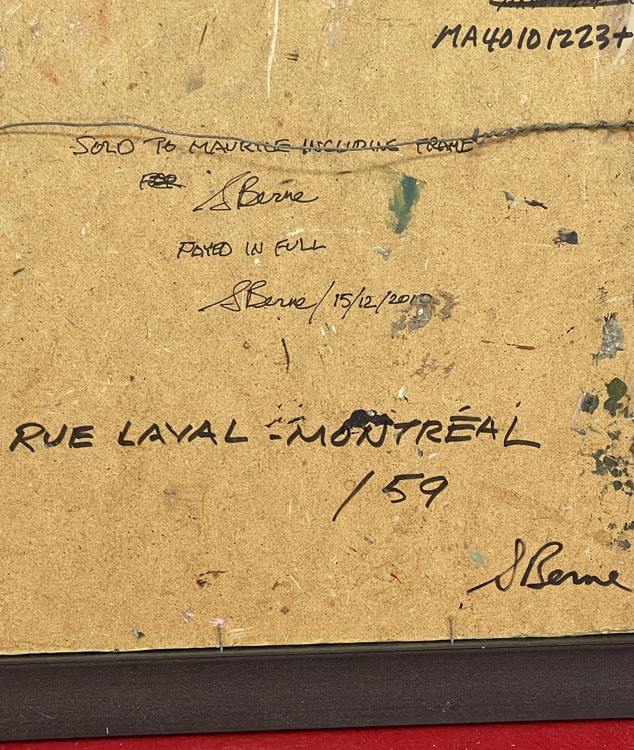 MA40101223+
SOLD TO MAURICE INCLUDING FRAME
S Berne
PAYED IN FULL
S Berne / 15/12/2010
RUE LAVAL - MONTRÉAL
/59
S Berne